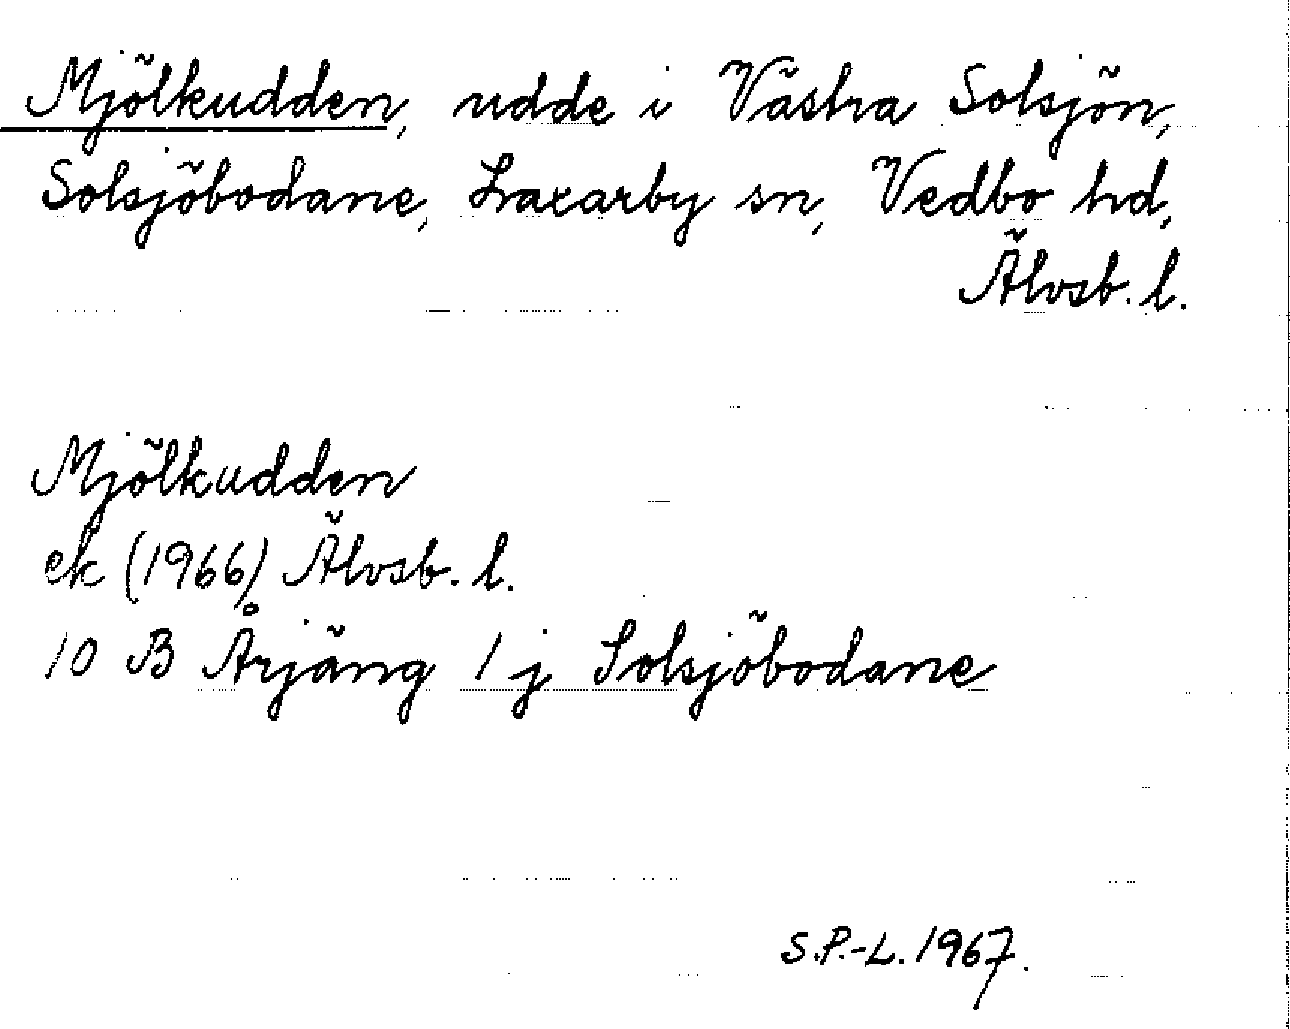 Mjölkudden, udde i Västra Solsjön,
Solsjöbodane, Laxarby sn, Vedbo hd,
Älvsb. l.
Mjölkudden
ek (1966) Älvsb. l.
10 B Årjäng 1 j Solsjöbodane
S.P.-L. 1967.